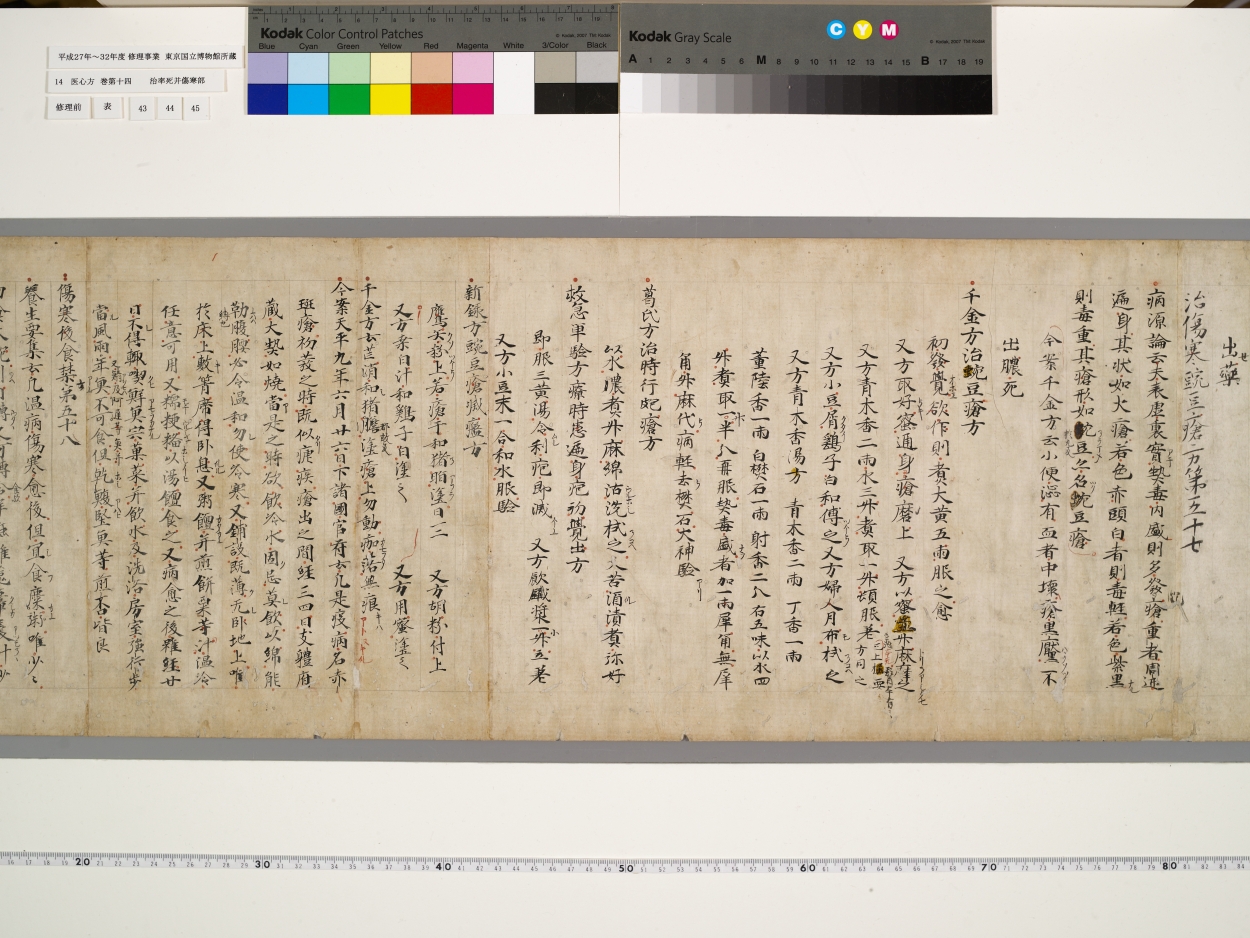 平成27年～32年度 修理事業 東京国立博物館所蔵
14 医心方 巻第十四 治卒死并傷寒部
修理前 表 43 44 45
Kodak Color Control Patches
© Kodak, 2007 TM: Kodak
Blue Cyan Green Yellow Red Magenta White 3/Color Black
Kodak Gray Scale
C Y M
© Kodak, 2007 TM: Kodak
A 1 2 3 4 5 6 M 8 9 10 11 12 13 14 15 B 17 18 19
出藥
治傷寒豌豆瘡方第五十七
病源論云夫表虚裏實熱毒内盛則多發瘡重者周迊
遍身其狀如火瘡若色赤頭白者則毒軽若色紫黒
則毒重其瘡形如豌豆亦名豌豆瘡
今案千金方云小便澁有血者中壊瘡黒靨不
出膿死
千金方治豌豆瘡方
初發覺欲作則煮大黄五兩服之愈
又方取好蜜通身瘡磨上 又方以蜜煎升麻摩之
又方青木香二兩水三升煮取一升頓服
又方小豆屑鷄子白和傅之又方婦人月布拭之
又方青木香湯方 青木香二兩 丁香一兩
董陸香一兩 白樊石一兩 射香二分 右五味以水四
升煮取一半分再服熱毒盛者加一兩犀角無犀
角升麻代病軽去樊石大神驗
葛氏方治時行皰瘡方
以水濃煮升麻綿沾洗拭之又若酒漬煮弥好
救急單驗方療時患遍身皰初覺出方
即服三黄湯令利皰即滅 又方飲鐵漿一升
又方小豆末一合和水服驗
新録方豌豆瘡滅瘢方
鷹矢粉上若瘡干和猪脂塗日二 又方胡粉付上
又方桑白汁和鷄子白塗之 又方用蜜塗之
千金方云芒消和猪膽塗瘡上勿動痂落無痕
今案天平九年六月廿六日下諸國官符云凡是疫病名赤
斑瘡初發之時既似瘧疾瘡出之間経三四日支體府
蔵大熱如燒當是之時欲飲冷水固忌莫飲以綿能
勒腹腰必令温和勿使冷寒又鋪設既薄无卧地上唯
於床上敷簀席得卧息又粥饘并煎餅粟等汁温冷
任意可用又糯粳糒以湯饘食之又病愈之後雖経廿
日不得輙喫鮮宍菓菜并飲水及洗浴房室強行步
當風雨
傷寒後食禁第五十八
養生要集云凡温病傷寒愈後但宜食糜粥唯少々
20 30 40 50 60 70 80